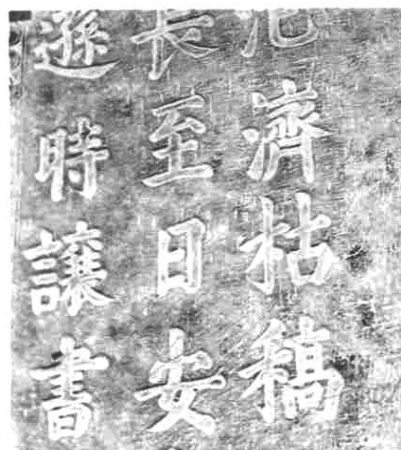 濟枯稿
長至日安
遜時讓書